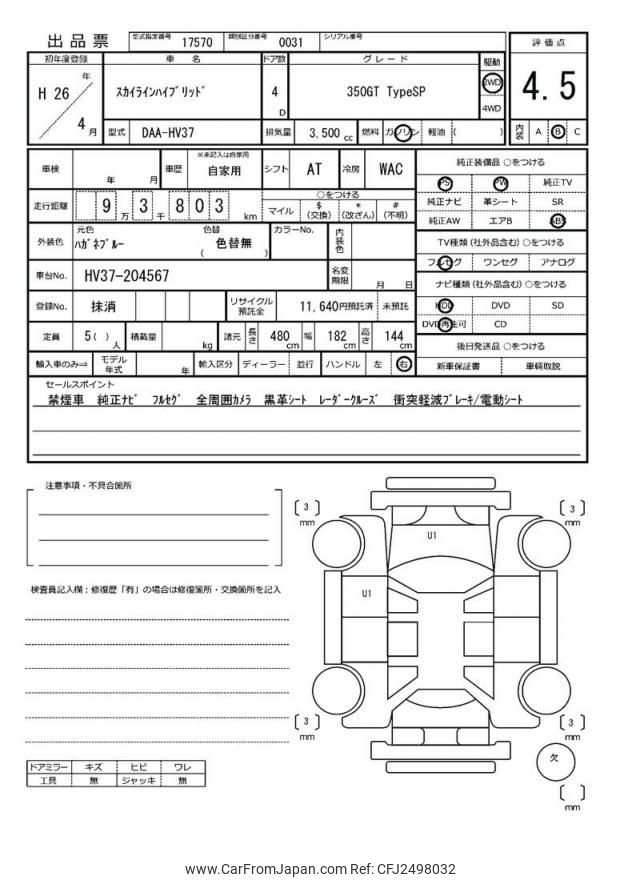 出品票 型式指定番号 17570 類別区分番号 0031 シリアル番号
初年度登録 車名 ドア数 グレード 駆動 評価点
H 26 年 4 月 スカイラインハイブリッド 4 D 350GT TypeSP 2WD 4WD 4.5
型式 DAA-HV37 排気量 3,500 cc 燃料 ガソリン 軽油 ( ) 内装 A B C
車検 年 月 車歴 ※未記入は自家用 自家用 シフト AT 冷房 WAC
走行距離 9 万 3 千 8 0 3 km ○をつける
マイル $ (交換) * (改ざん) # (不明)
外装色 元色 ハガネブルー 色替 ( 色替無 ) カラーNo. 内装色
車台No. HV37-204567 名変期限 月 日
登録No. 抹消 リサイクル預託金 11,640円預託済 未預託
定員 5 ( ) 人 積載量 kg 諸元 長さ 480 cm 幅 182 cm 高さ 144 cm
輸入車のみ⇒ モデル年式 年 輸入区分 ディーラー 並行 ハンドル 左 右
純正装備品 ○をつける
PS PW 純正TV
純正ナビ 革シート SR
純正AW エアB ABS
TV種類 (社外品含む) ○をつける
フルセグ ワンセグ アナログ
ナビ種類 (社外品含む) ○をつける
HDD DVD SD
DVD再生可 CD
後日発送品 ○をつける
新車保証書 車輌取説
セールスポイント
禁煙車 純正ナビ フルセグ 全周囲カメラ 黒革シート レーダークルーズ 衝突軽減ブレーキ/電動シート
注意事項・不具合箇所
検査員記入欄：修復歴「有」の場合は修復箇所・交換箇所を記入
[ 3 ] mm
[ 3 ] mm
U1
U1
[ 3 ] mm
[ 3 ] mm
欠
[ ] mm
ドアミラー キズ ヒビ ワレ
工具 無 ジャッキ 無
www.CarFromJapan.com Ref: CFJ2498032